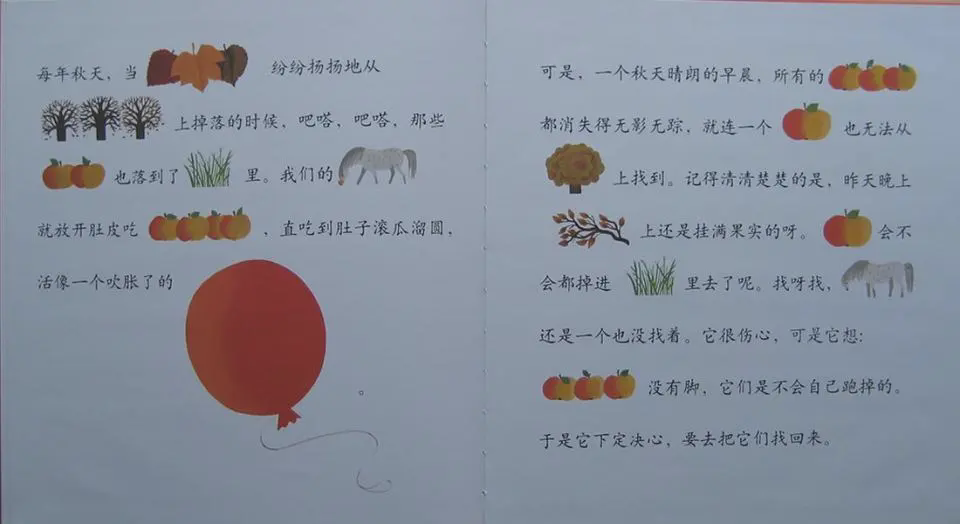 每年秋天，当 纷纷扬扬地从
上掉落的时候，吧嗒，吧嗒，那些
也落到了 里。我们的
就放开肚皮吃 ，直吃到肚子滚瓜溜圆，
活像一个吹胀了的
。
可是，一个秋天晴朗的早晨，所有的
都消失得无影无踪，就连一个 也无法从
上找到。记得清清楚楚的是，昨天晚上
上还是挂满果实的呀。 会不
会都掉进 里去了呢。找呀找，
还是一个也没找着。它很伤心，可是它想：
没有脚，它们是不会自己跑掉的。
于是它下定决心，要去把它们找回来。